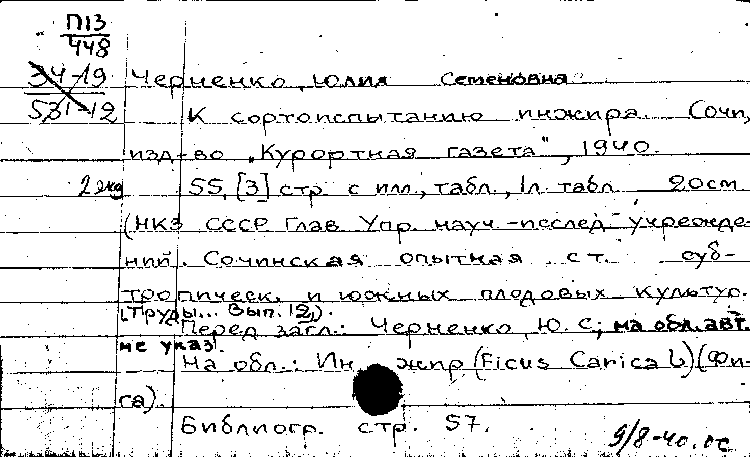 П13
448
34-19
531-12
Черненко, Юлия Семеновна
К сортоиспытанию инжира. Сочи,
изд-во „Курортная газета", 1940.
2 экз 55, [3] стр. с илл., табл., 1 л. табл. 20см
(НКЗ СССР Глав. Упр. науч.-исслед. учрежде-
ний. Сочинская опытная ст. суб-
тропическ. и южных плодовых культур.
(Труды... Вып. 12).
Перед загл.: Черненко, Ю. С.; на обл. авт.
не указ.
На обл.: Инжир (Ficus Carica L) (Фи-
га).
Библиогр. стр. 57.
9/8-40.